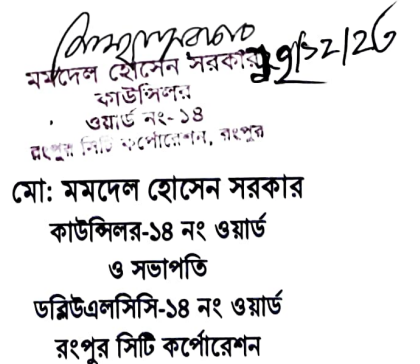 মমদেল হোসেন সরকার
কাউন্সিলর
ওয়ার্ড নং- ১৪
রংপুর সিটি কর্পোরেশন, রংপুর
মো: মমদেল হোসেন সরকার
কাউন্সিলর-১৪ নং ওয়ার্ড
ও সভাপতি
ডব্লিউএলসিসি-১৪ নং ওয়ার্ড
রংপুর সিটি কর্পোরেশন